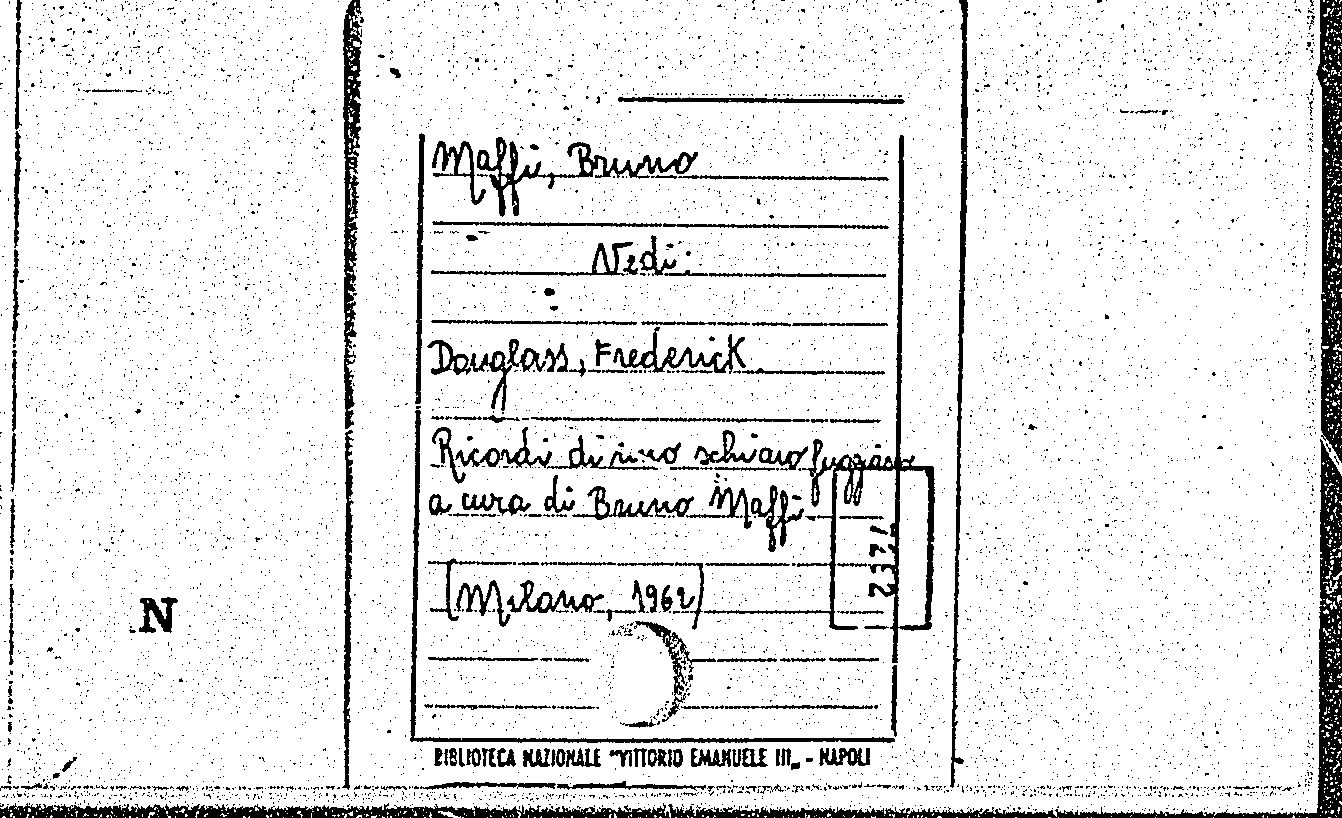 Maffi, Bruno
Vedi:
Douglass, Frederick.
Ricordi di uno schiavo fuggiasco
a cura di Bruno Maffi.
(Milano, 1962)
N
BIBLIOTECA NAZIONALE "VITTORIO EMANUELE III„ - NAPOLI